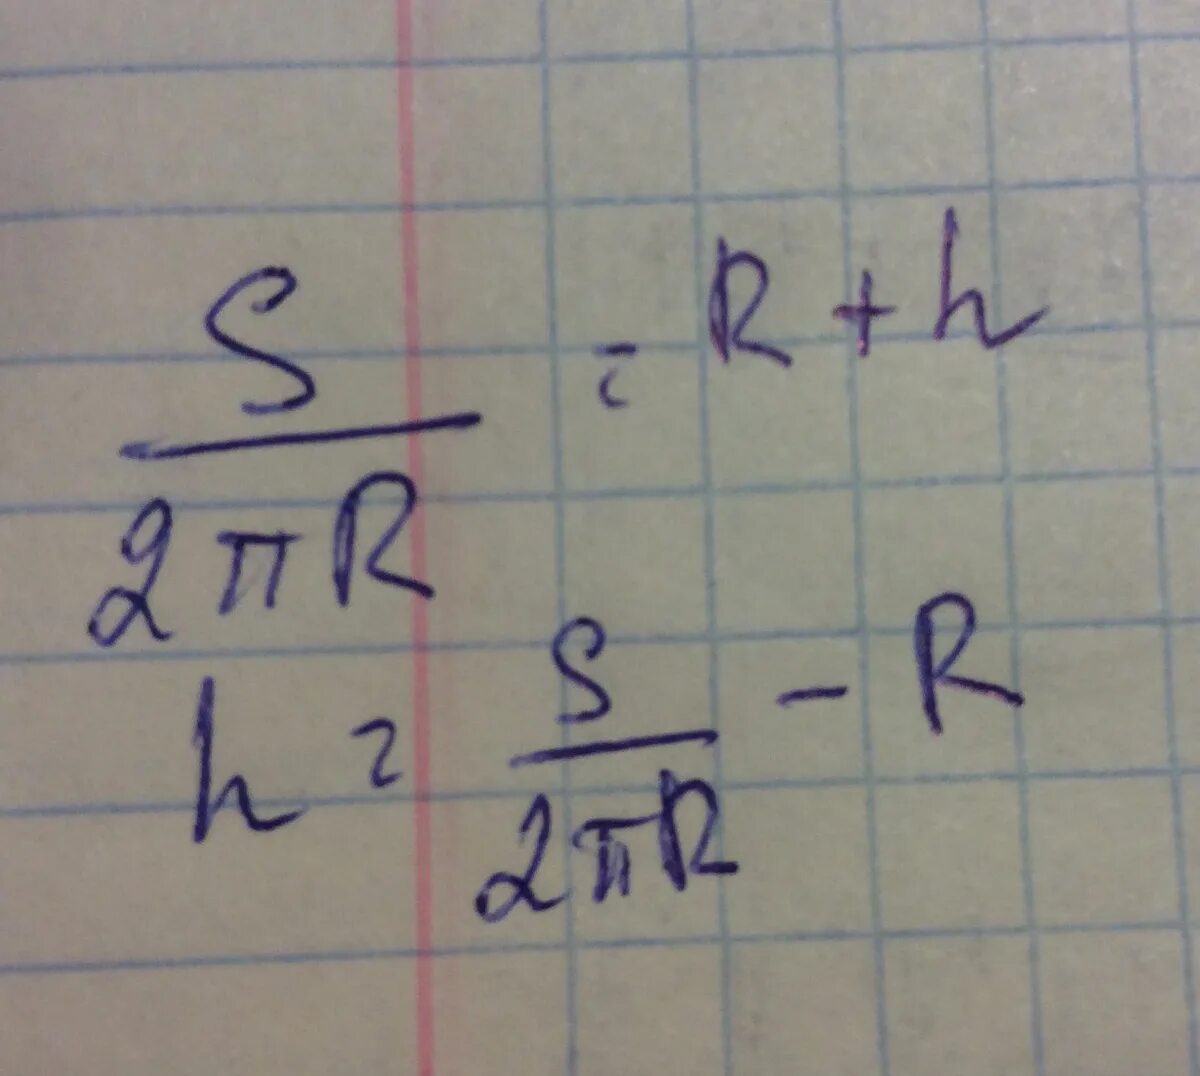 S/2πR = R + h
h = S/2πR - R